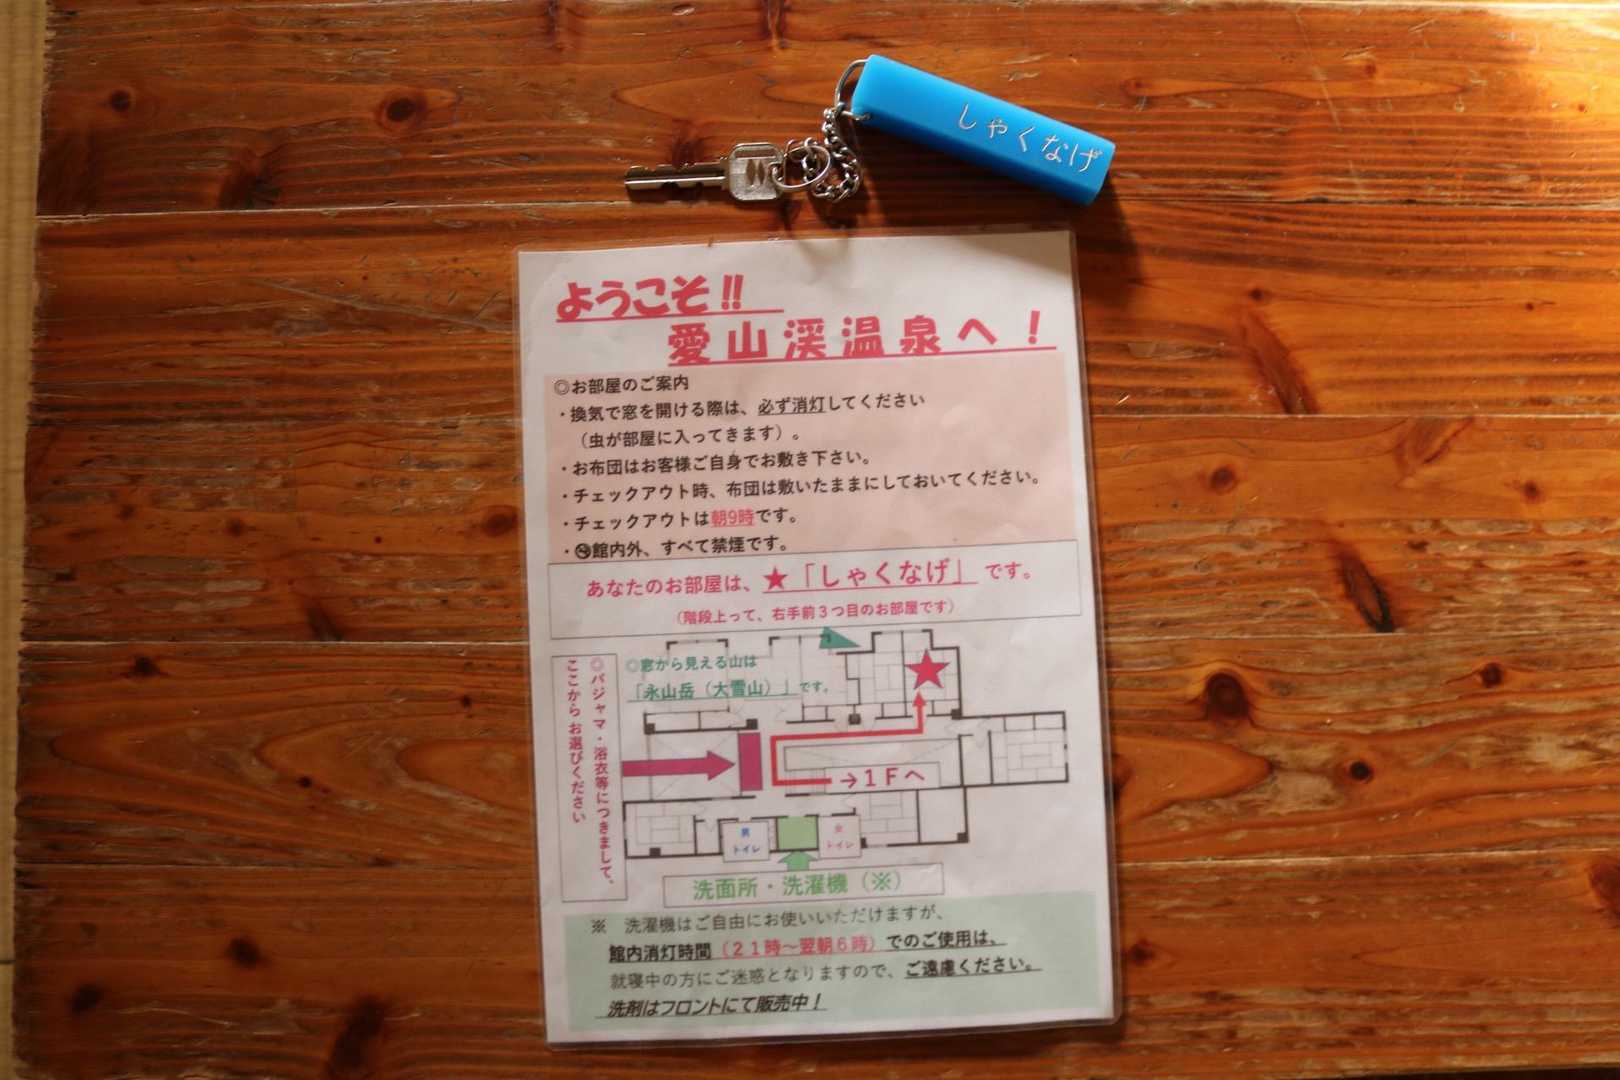 しゃくなげ
ようこそ!!
愛山渓温泉へ！
◎お部屋のご案内
・換気で窓を開ける際は、必ず消灯してください
（虫が部屋に入ってきます）。
・お布団はお客様ご自身でお敷き下さい。
・チェックアウト時、布団は敷いたままにしておいてください。
・チェックアウトは朝9時です。
・🚭館内外、すべて禁煙です。
あなたのお部屋は、★「しゃくなげ」です。
（階段上って、右手前３つ目のお部屋です）
◎パジャマ・浴衣等につきまして、
ここからお選びください
◎窓から見える山は
「永山岳（大雪山）」です。
→１Ｆへ
男
トイレ
女
トイレ
洗面所・洗濯機（※）
※　洗濯機はご自由にお使いいただけますが、
館内消灯時間（２１時～翌朝６時）でのご使用は、
就寝中の方にご迷惑となりますので、ご遠慮ください。
洗剤はフロントにて販売中！